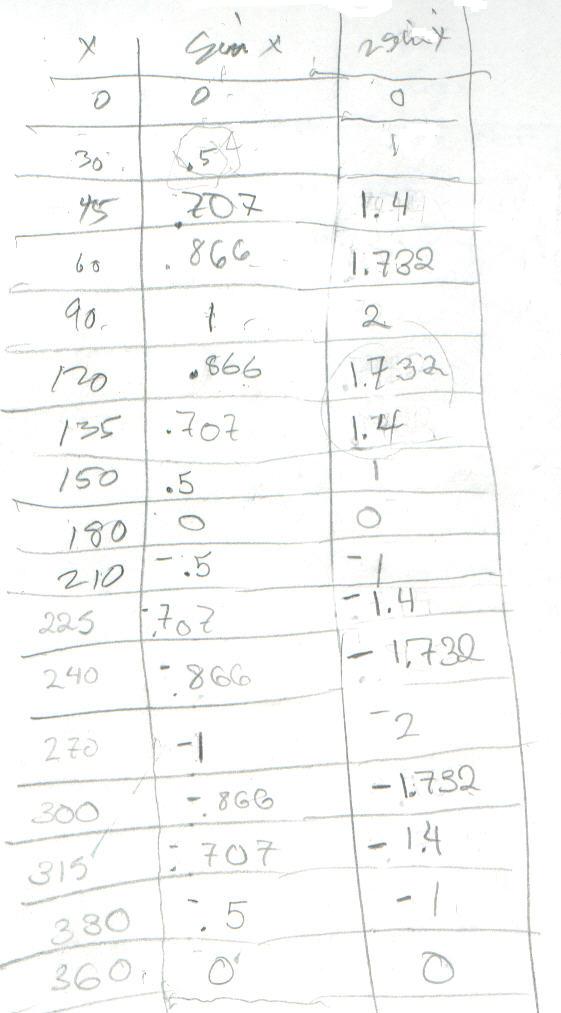 x sin x 2 sin x
0 0 0
30 .5 1
45 .707 1.4
60 .866 1.732
90 1 2
120 .866 1.732
135 .707 1.4
150 .5 1
180 0 0
210 -.5 -1
225 -.707 -1.4
240 -.866 -1.732
270 -1 -2
300 -.866 -1.732
315 -.707 -1.4
330 -.5 -1
360 0 0